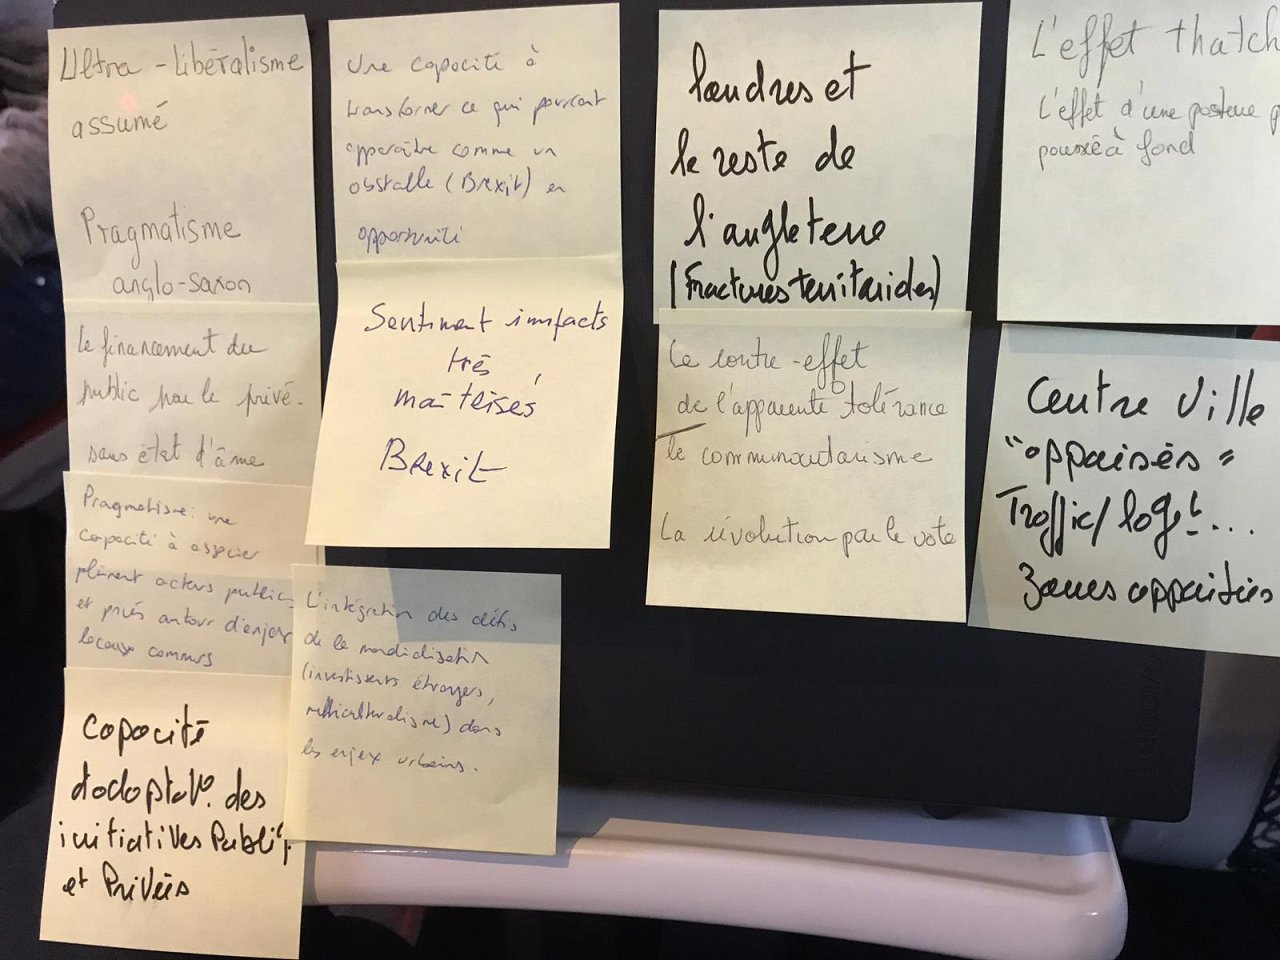 Ultra-libéralisme
assumé
Pragmatisme
anglo-saxon
Le financement du
public par le privé -
sans état d'âme
Pragmatisme: une
capacité à associer
acteurs publics
et privés autour d'enjeux
locaux communs
Capacité
d'adaptat°. des
initiatives Publiq
et Privées
Une capacité à
transformer ce qui pourrait
apparaître comme un
obstacle (Brexit) en
opportunité
Sentiment impacts
très
maîtrisés
Brexit
L'intégration des défis
de la mondialisation
(investissts étrangers,
multiculturalisme) dans
les enjeux urbains.
Londres et
le reste de
l'angleterre
(Fractures territoriales)
Le contre-effet
de l'apparente tolérance
le communautarisme
La révolution par le vote
L'effet thatch
L'effet d'une posture p
poussée à fond
Centre Ville
"appaisés"
Traffic/logt...
Zones appaisées